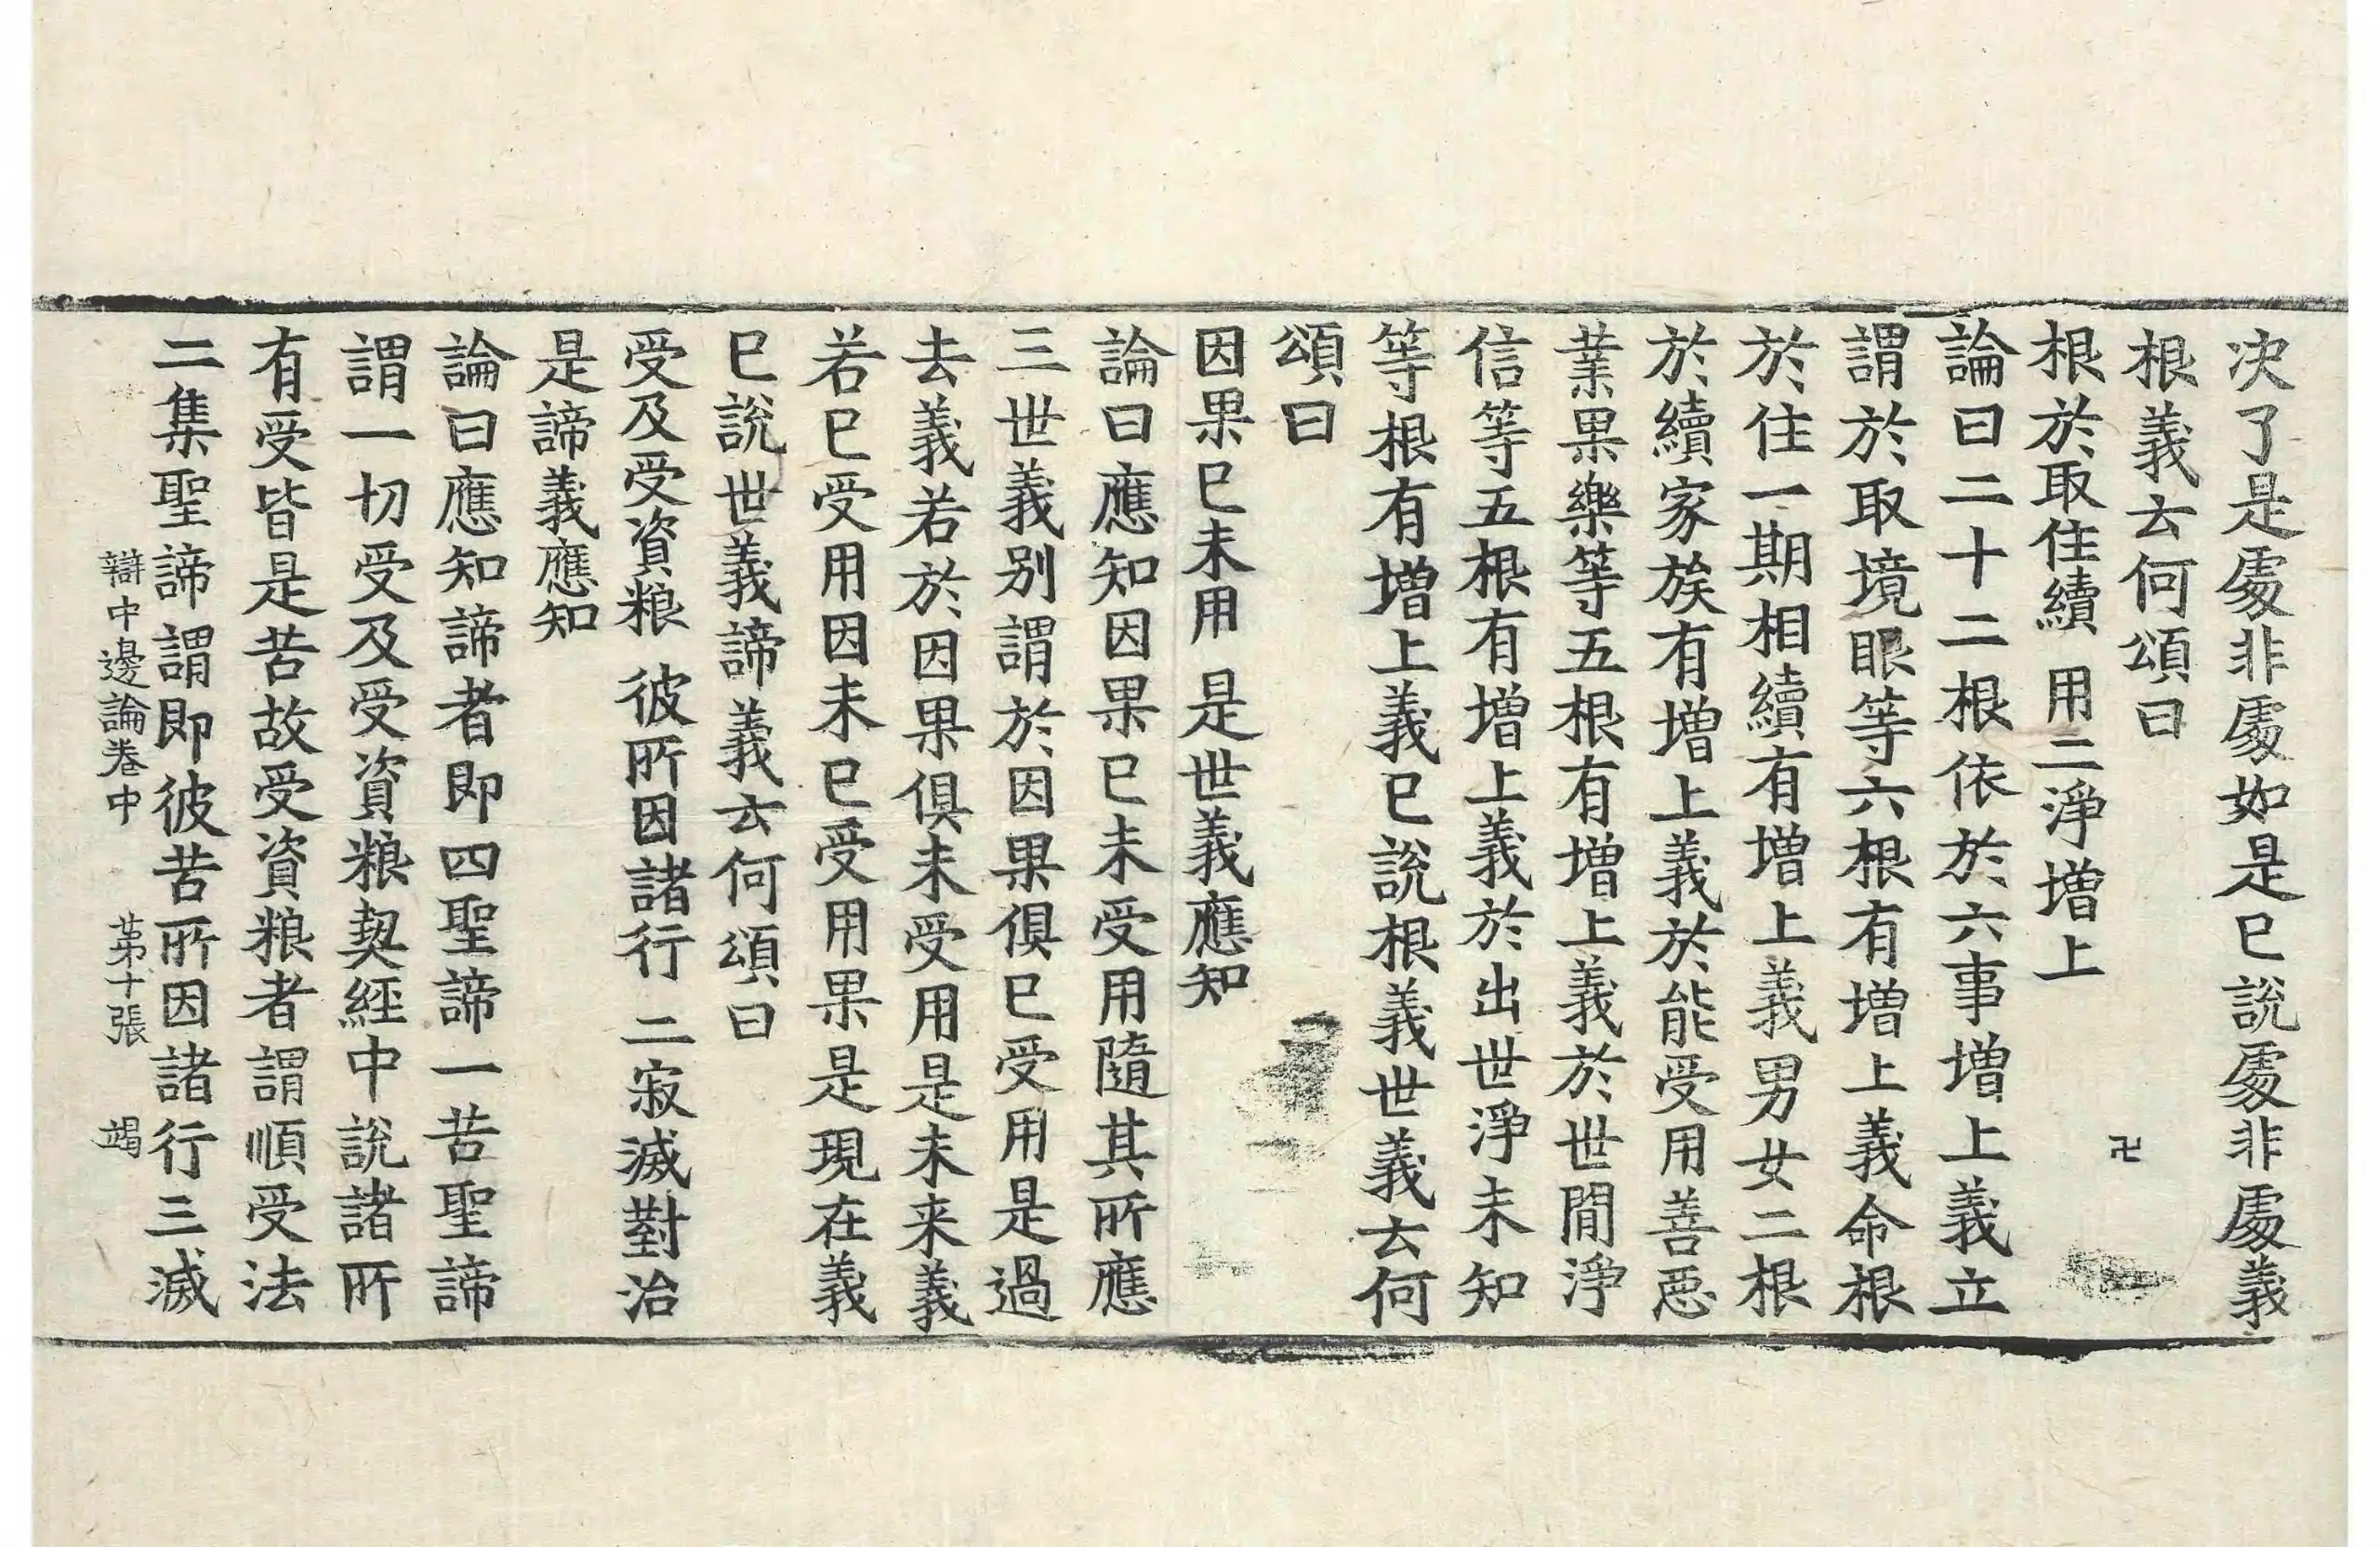 次了是䖏非䖏如是已說䖏非䖏義
根義云何頌曰
卍
根於取住續 用二淨增上
論曰二十二根依於六事增上義立
謂於取境眼等六根有增上義命根
於住一期相續有增上義男女二根
於續家族有增上義於能受用善惡
業果樂等五根有增上義於世間淨
信等五根有增上義於出世淨未知
等根有增上義已說根義世義云何
頌曰
因果已未用 是世義應知
論曰應知因果已未受用隨其所應
三世義別謂於因果俱已受用是過
去義若於因果俱未受用是未来義
若已受用因未已受用果是現在義
已說世義諦義云何頌曰
受及受資粮 彼所因諸行 二寂滅對治
是諦義應知
論曰應知諦者即四聖諦一苦聖諦
謂一切受及受資粮契經中說諸所
有受皆是苦故受資粮者謂順受法
二集聖諦謂即彼苦所因諸行三滅
辯中邊論卷中 苐十張 竭